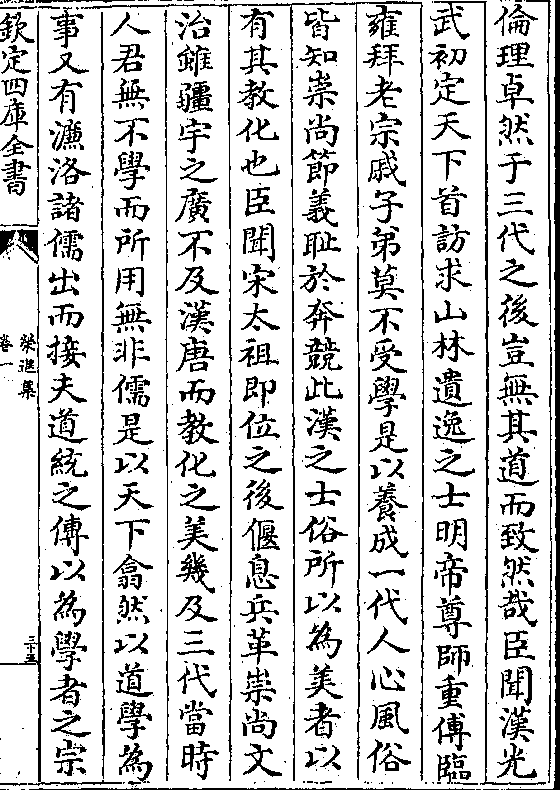 倫理卓然于三代之後豈無其道而致然哉臣聞漢光
武初定天下首訪求山林遺逸之士明帝尊師重傅臨
雍拜老宗戚子弟莫不受學是以養成一代人心風俗
皆知崇尚節義耻於奔競此漢之士俗所以為美者以
有其教化也臣聞宋太祖即位之後偃息兵革崇尚文
治雖疆宇之廣不及漢唐而教化之美幾及三代當時
人君無不學而所用無非儒是以天下翕然以道學為
事又有濂洛諸儒出而接夫道統之傳以為學者之宗
欽定四庫全書
榮進集
卷一
三十五